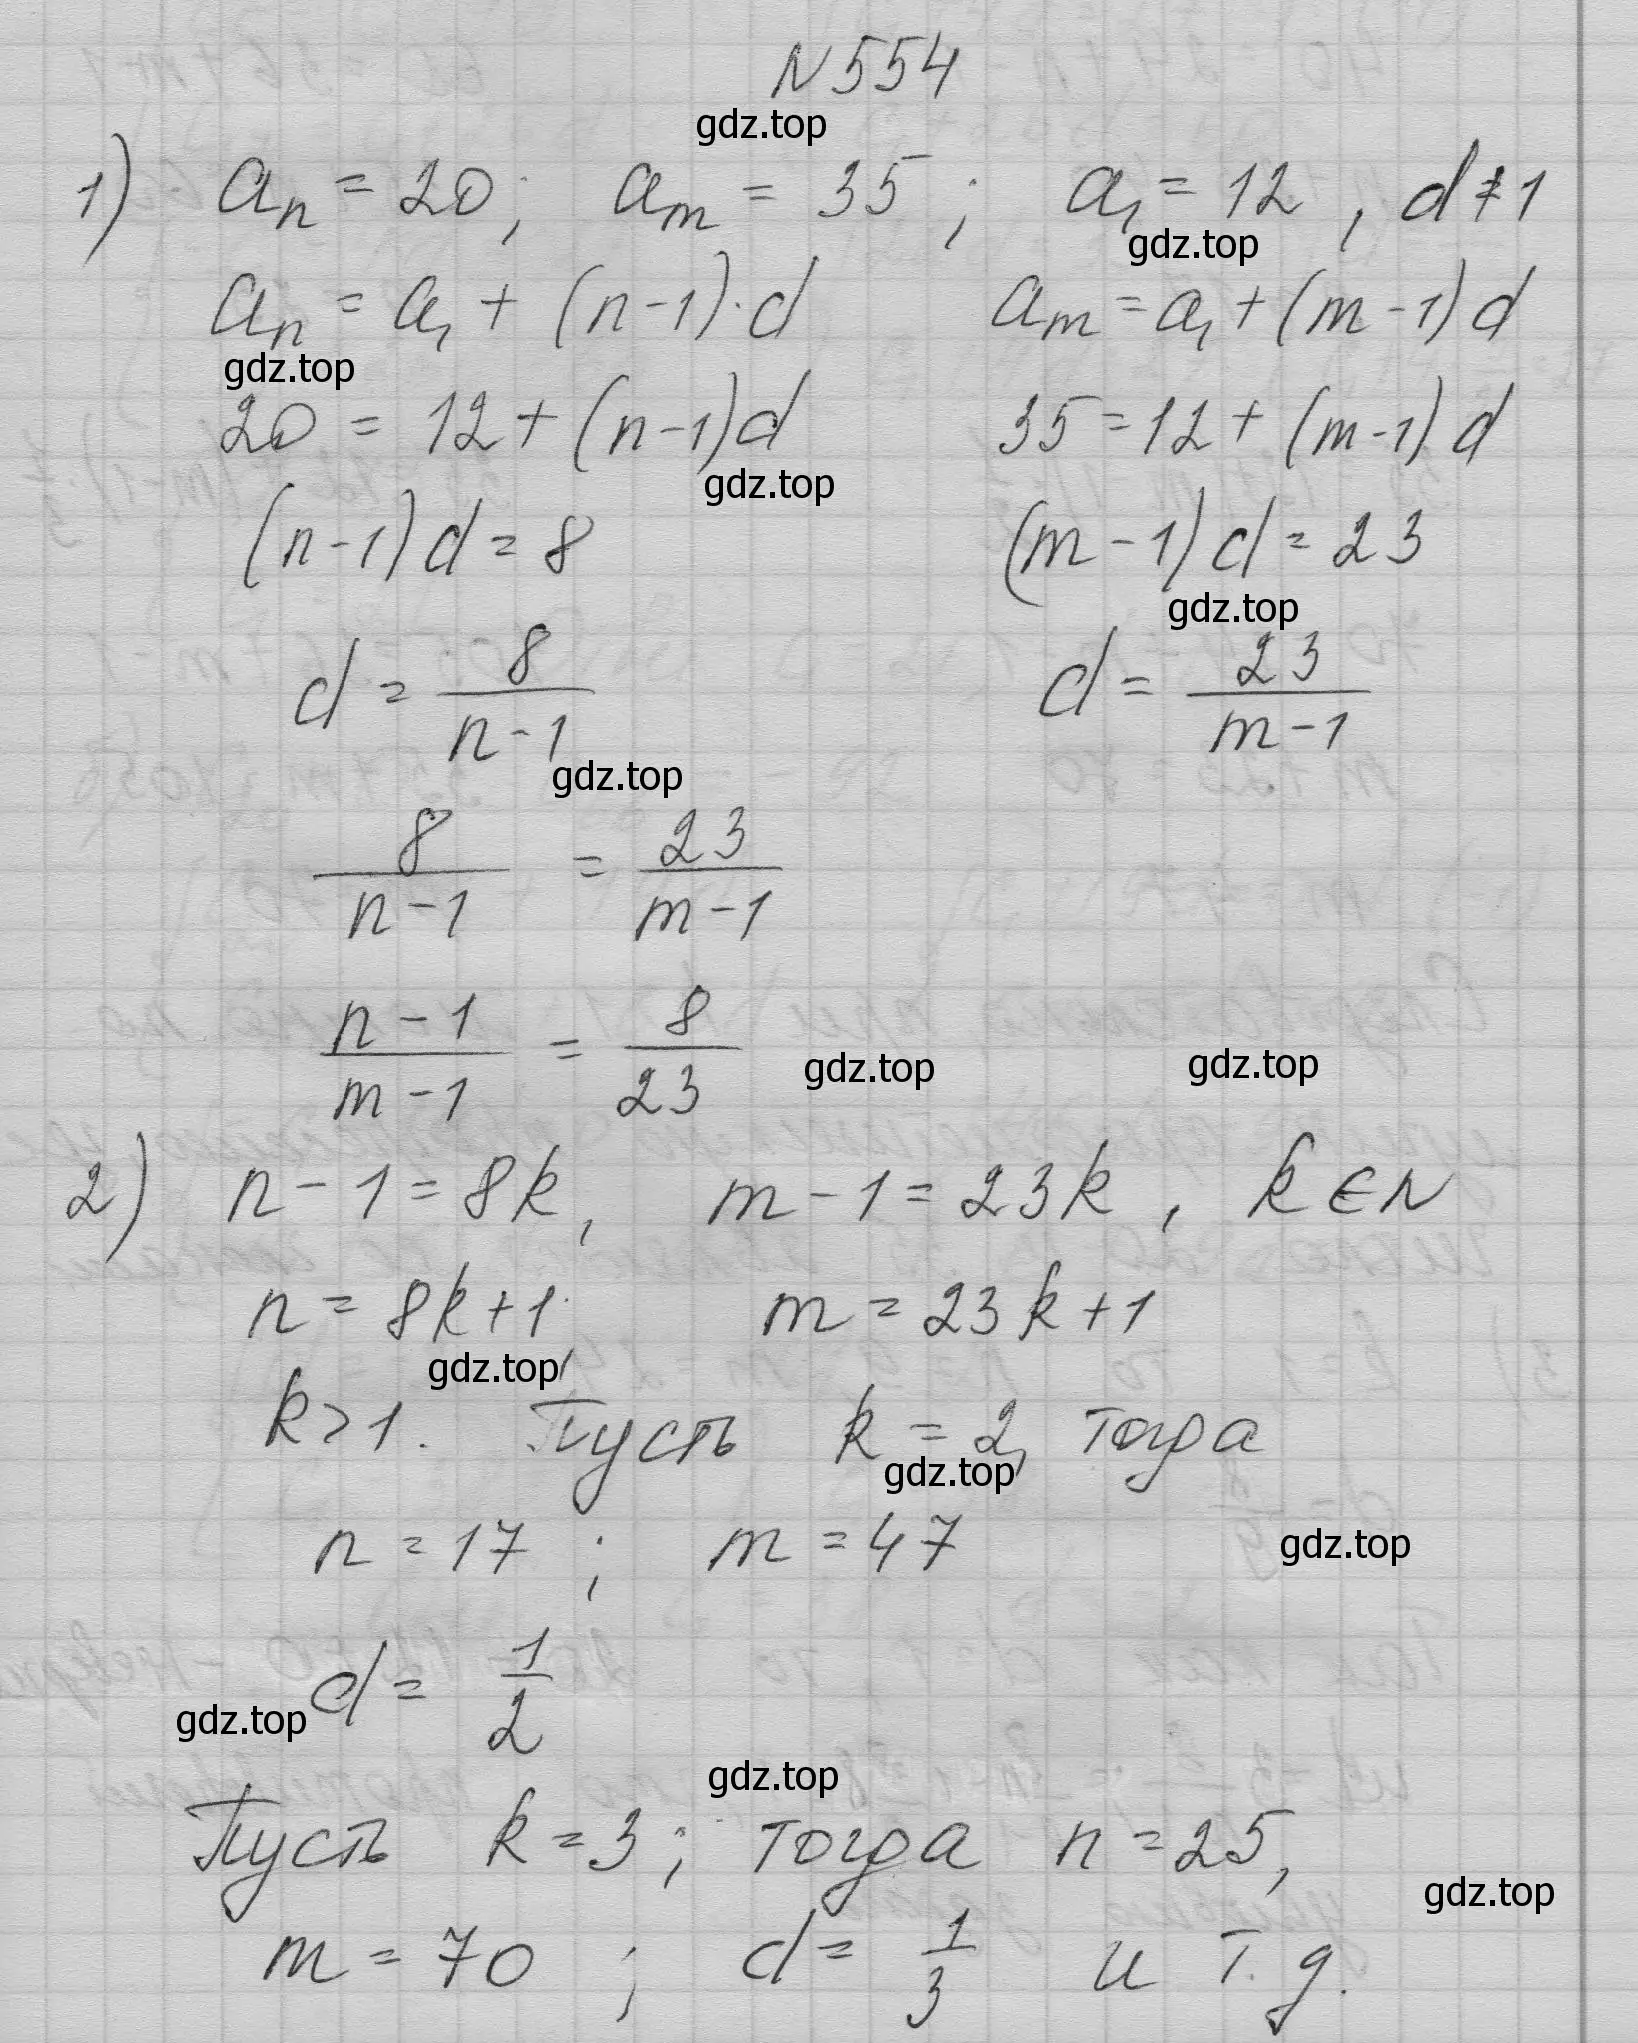 N554
gdz.top
1) aₙ = 20; aₘ = 35; a₁ = 12, d ≠ 1
gdz.top
aₙ = a₁ + (n-1)·d aₘ = a₁ + (m-1)d
gdz.top
20 = 12 + (n-1)d 35 = 12 + (m-1)d
gdz.top
(n-1)d = 8 (m-1)d = 23
gdz.top
d = 8/(n-1) d = 23/(m-1)
gdz.top
8/(n-1) = 23/(m-1)
(n-1)/(m-1) = 8/23
gdz.top gdz.top
2) n-1 = 8k, m-1 = 23k, k ∈ N
n = 8k+1 m = 23k+1
gdz.top
k > 1. Пусть k = 2, тогда
gdz.top
n = 17; m = 47
gdz.top
d = 1/2
gdz.top
gdz.top
Пусть k = 3; тогда n = 25,
gdz.top
m = 70; d = 1/3 и т.д.